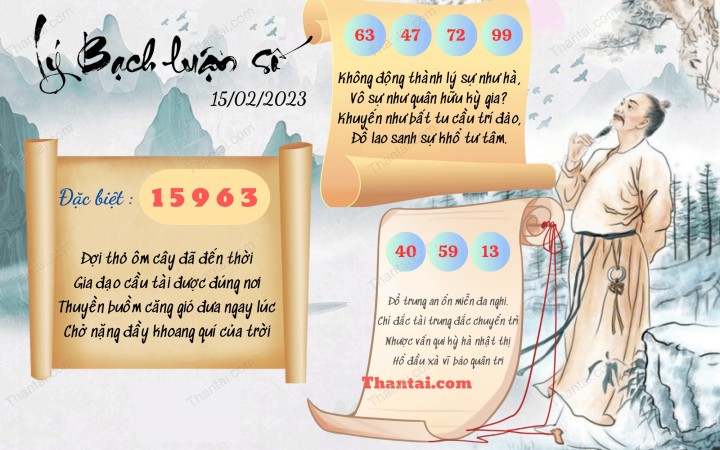 Lý Bạch luận số
15/02/2023
63 47 72 99
Không động thành lý sự như hà,
Vô sự như quân hữu kỳ gia?
Khuyến như bất tu cầu trí đảo,
Đồ lao sanh sự khổ tư tâm.
Đặc biệt : 15963
Đợi thỏ ôm cây đã đến thời
Gia đạo cầu tài được đúng nơi
Thuyền buồm căng gió đưa ngay lúc
Chở nặng đầy khoang quí của trời
40 59 13
Đồ trung an ổn miễn đa nghi.
Chí đắc tài trung đắc chuyển trì
Nhược vấn qui kỳ hà nhật thị
Hồ đầu xà vĩ báo quân tri
Thantai.com